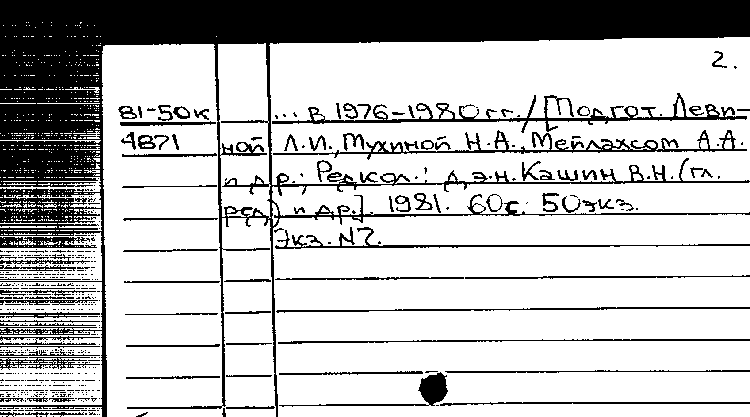 2.
81-50к ... в 1976-1980 гг. / [Подгот. Леви-
4871 ной Л.И., Мухиной Н.А., Мейлахсом А.А.
и др.; Редкол.: д.э.н. Кашин В.Н. (гл.
ред.) и др.]. 1981. 60с. 50экз.
Экз. N2.